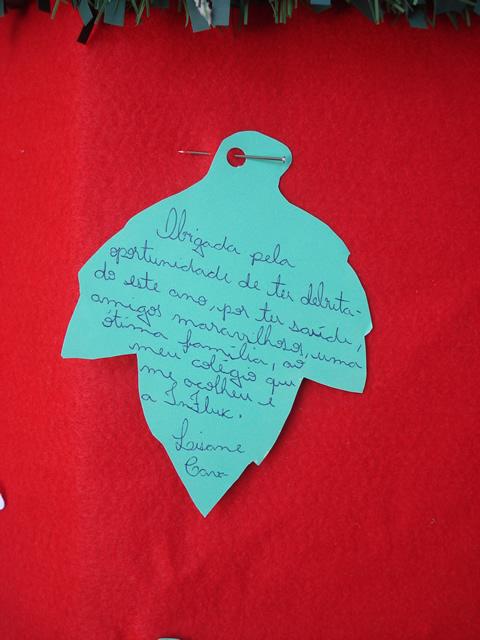 Obrigada pela
oportunidade de ter debuta-
do este ano, por ter saúde,
amigos maravilhosos, uma
ótima família, ao
meu colégio que
me acolheu e
a InFlux.
Lisane